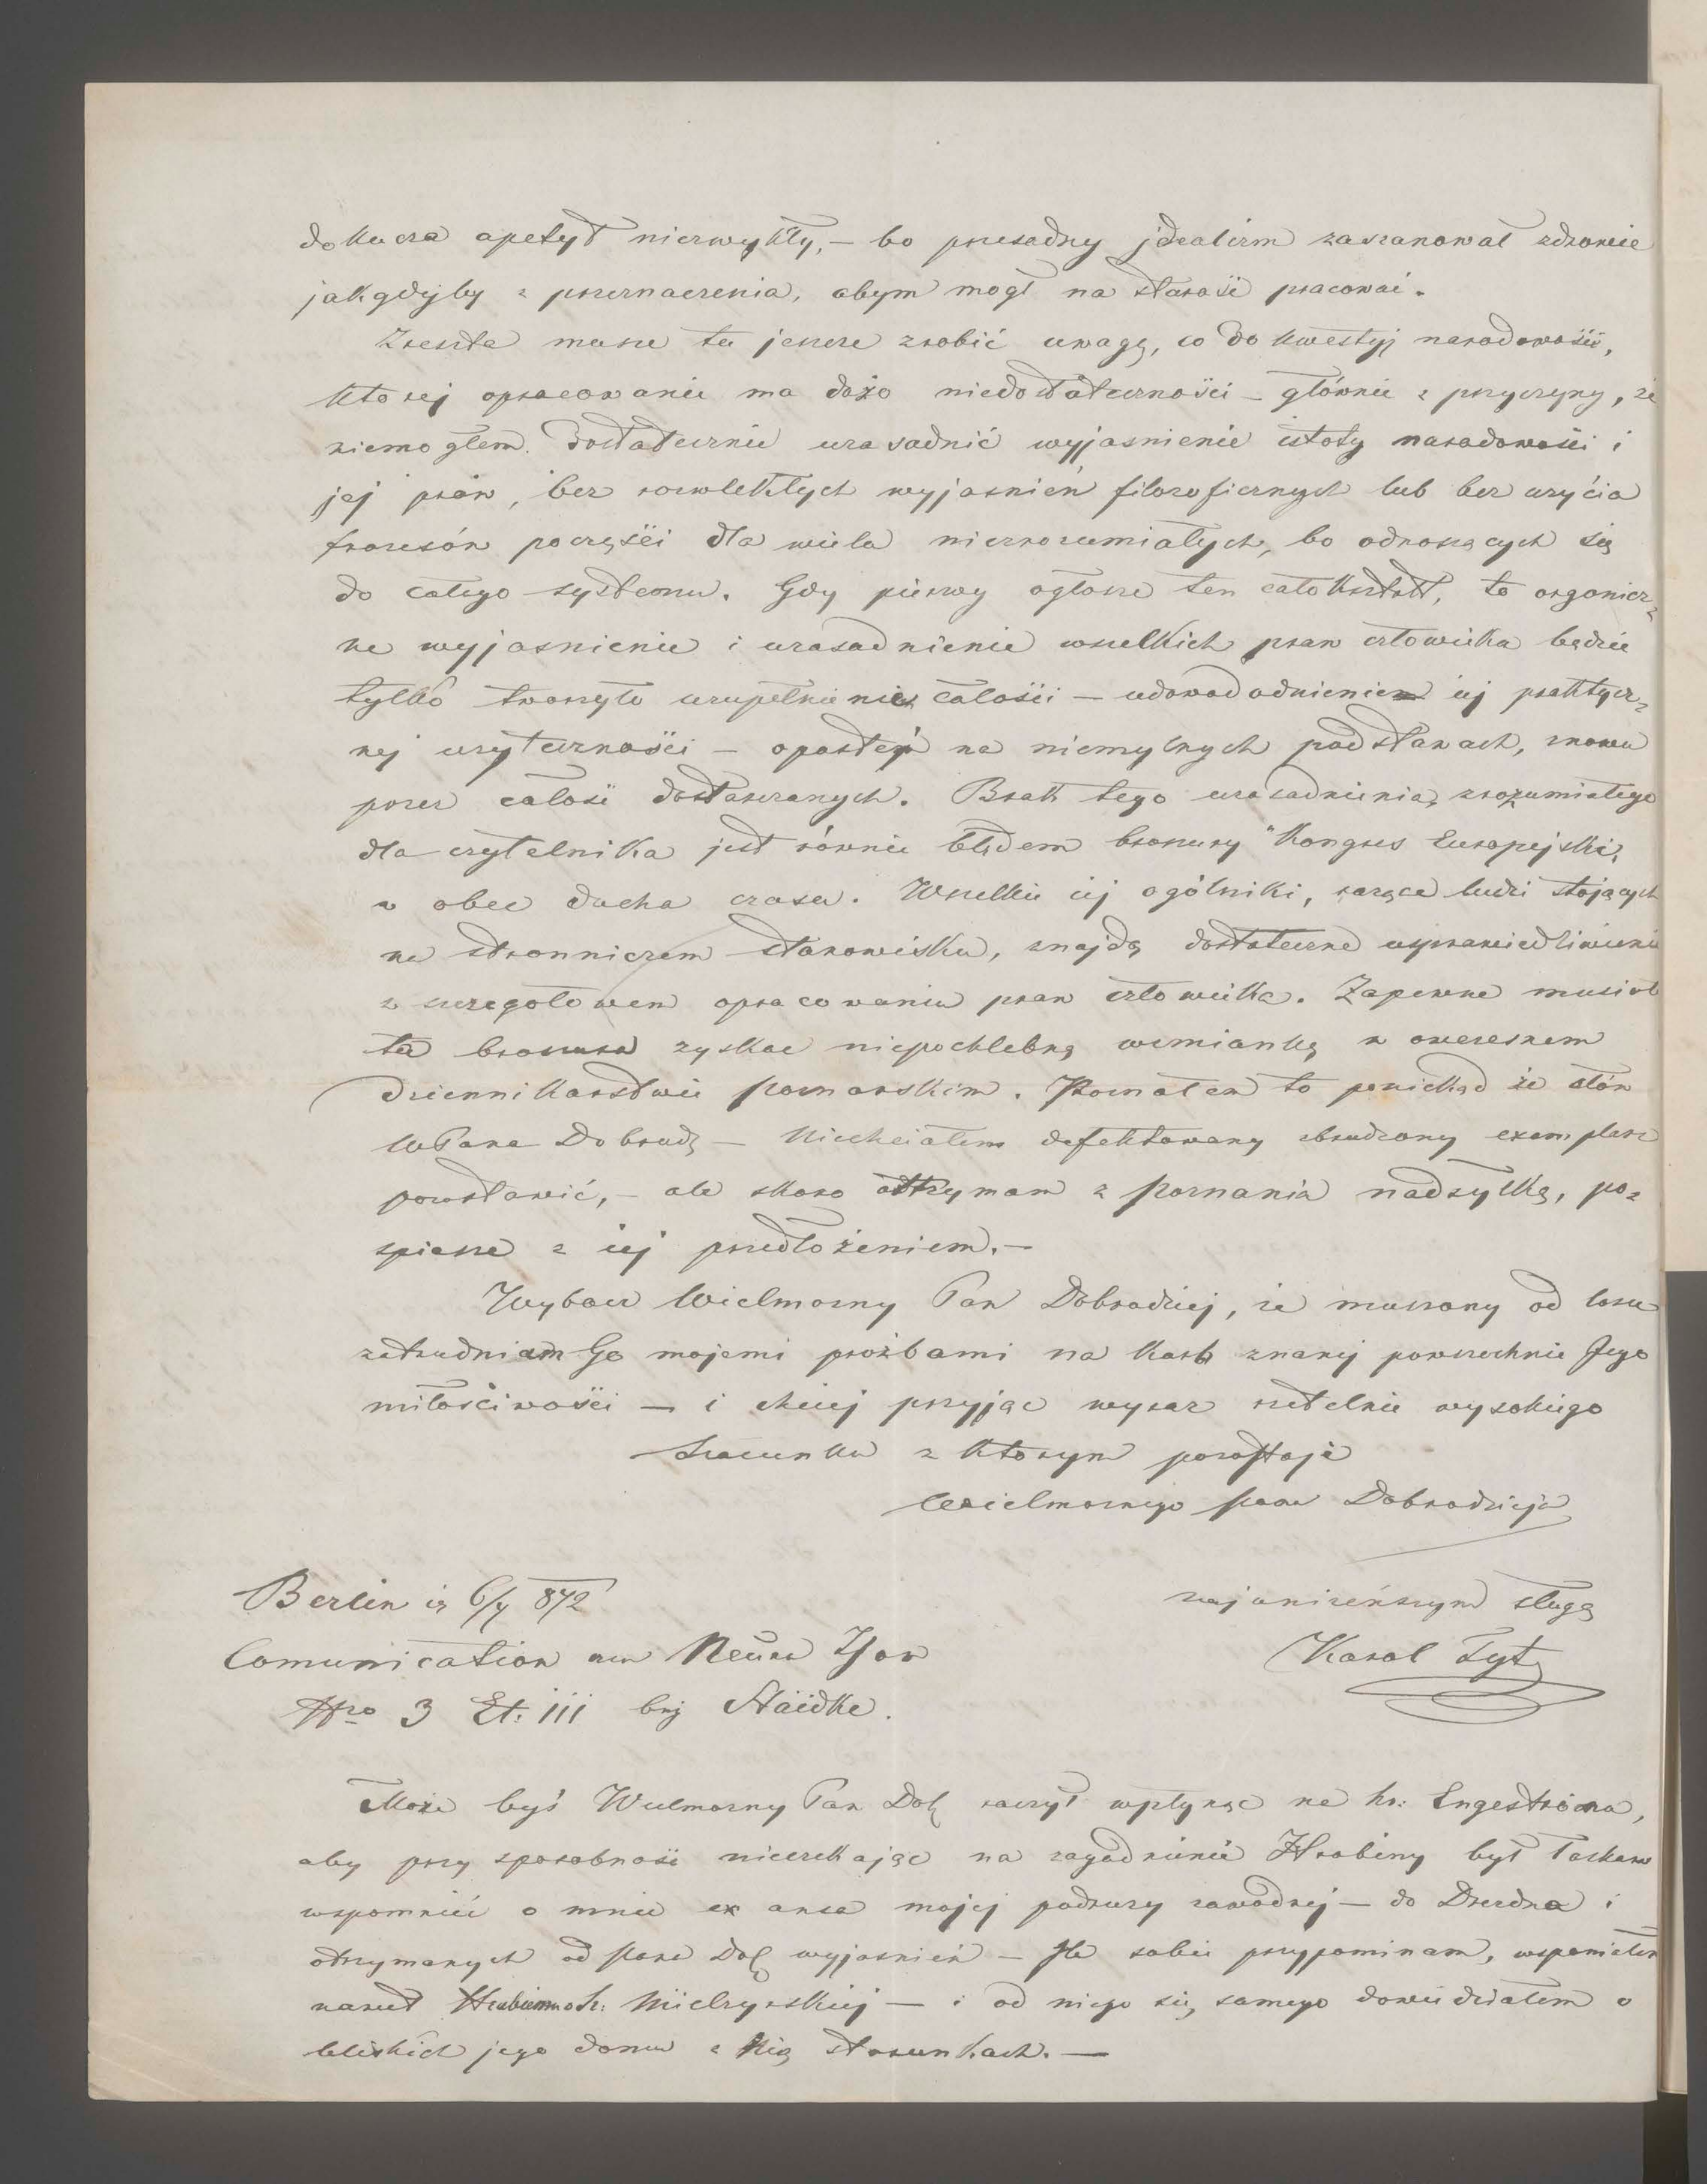 dokucza apetyt niezwykły, – bo przesadny jdealizm zaszanował zdrowie
jakgdyby z przeznaczenia, abym mogł na starość pracować.
Zresztą muszę tu jeszcze zrobić uwagę, co do kwestyj narodowości,
ktorej opracowanie ma dużo niedostateczności – głównie z przyczyny, że
niemogłem dostatecznie uzasadnić wyjasnienie istoty narodowości i
jej praw, bez rozwlekłych wyjasnień filozoficznych lub bez uzyćia
frazesów poczęści dla wielu niezrozumiałych, bo odnoszących się
do całego systemu. Gdy pierwy ogłoszę ten całokształt, to organicz-
ne wyjasnienie i uzasadnienie wszelkich praw człowieka będzie
tylko tworzyło uzupełnienie całości – udowadodnienie jej praktycz-
nej uzyteczności – opartéj na niemylnych podstawach, znowu
przez całość dostarczanych. Brak tego uzasadnienia, zrozumiałego
dla czytelnika jest równie błędem broszury "Kongres Europejski,
w obec ducha czasu. Wszelkie jej ogólniki, rażące ludzi stojących
na stronniczem stanowisku, znajdą dostateczne usprawiedliwienie
w szczegołowem opracowaniu praw człowieka. Zapewne musiała
ta broszura zyskac niepochlebną wzmiankę w owczesnem
dziennikarstwie poznanskim. Poznałem to poniekąd ze słów
WPana Dobrodz – Niechciałem defektowany zbrudzony exemplarz
pozostawić, – ale skoro odtrzymam z Poznania nadsyłkę, po-
spieszę z jej przedłożeniem. –
Wybacz Wielmozny Pan Dobrodziej, ze muszony od losu
zatrudniam Go mojemi prożbami na karb znanej powszechnie Jego
miłościwości – i chciej przyjąc wyraz rzetelnie wysokiego
Szacunku z ktorym pozostaję
Wielmoznego Pana Dobrodzieja
najunizeńszym sługą
Karol Tyt
Berlin 6/7 872
Comunication am Neuen Thor
Nro 3 Et: III bej Städke.
Może byś Wielmozny Pan Dob raczył wpłynąc na hr: Engeströma,
aby przy sposobnosci nieczekając na zagadnienie Hrabiny był łaskaw
wspomnieć o mnie ex ansa mojej podrozy zawodnej – do Drezdna i
otrzymanych od Pana Dob wyjasnień – Ile sobie przypominam, wspomniałem
nawet hr: Mielzynskiej – i od niego się samego dowiedziałem o
bliskich jego domu z Nią stosunkach. –